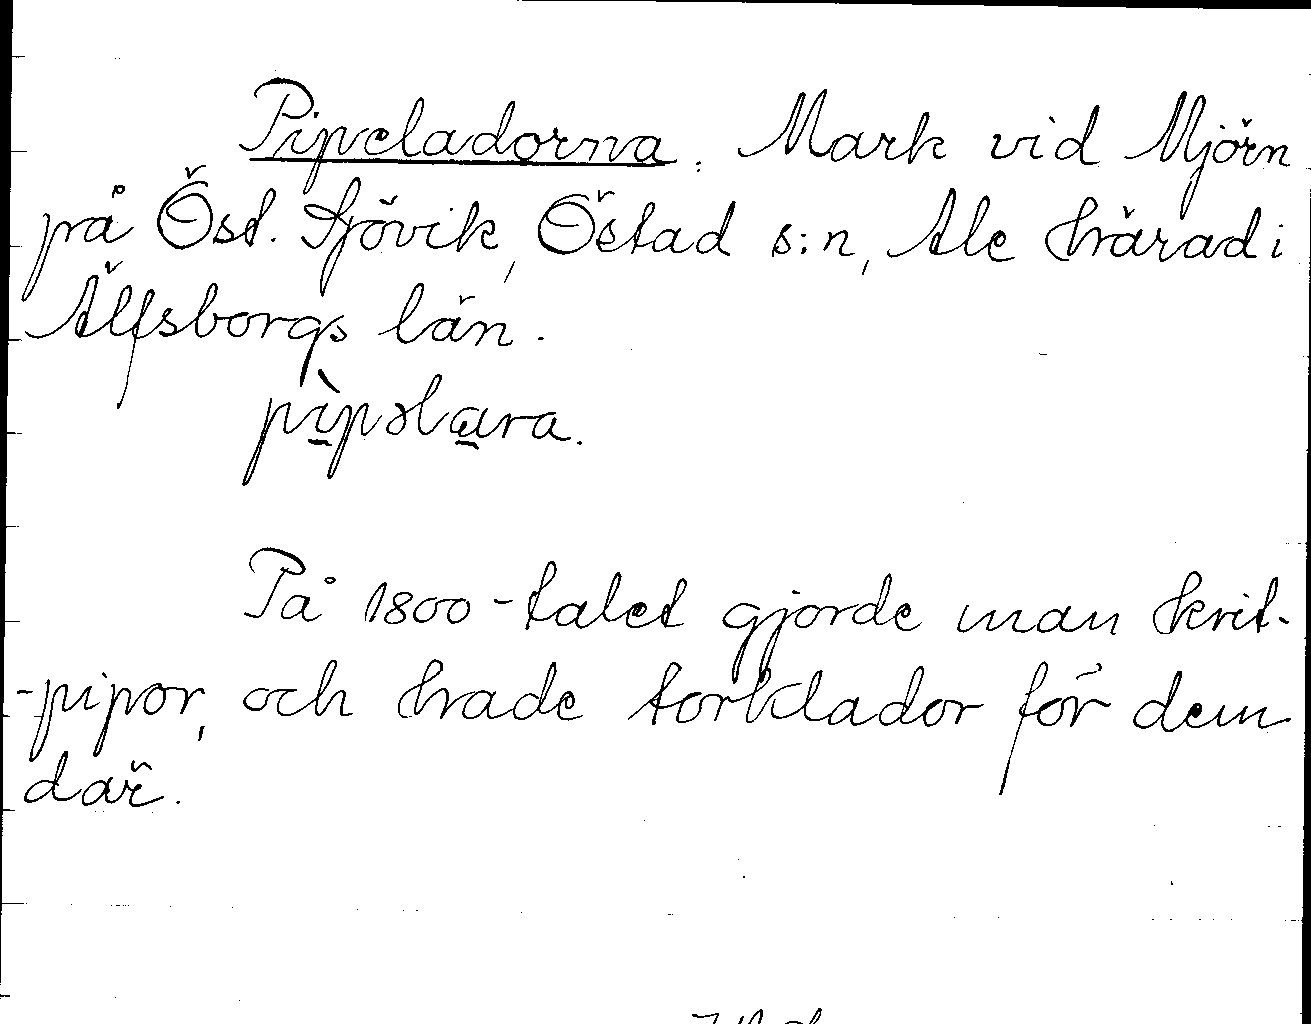 Pipeladorna. Mark vid Mjörn
på Öst. Sjövik, Östad s:n, Ale härad i
Älfsborgs län.
pìpəlara.
På 1800-talet gjorde man krit-
-pipor, och hade torklador för dem
där.